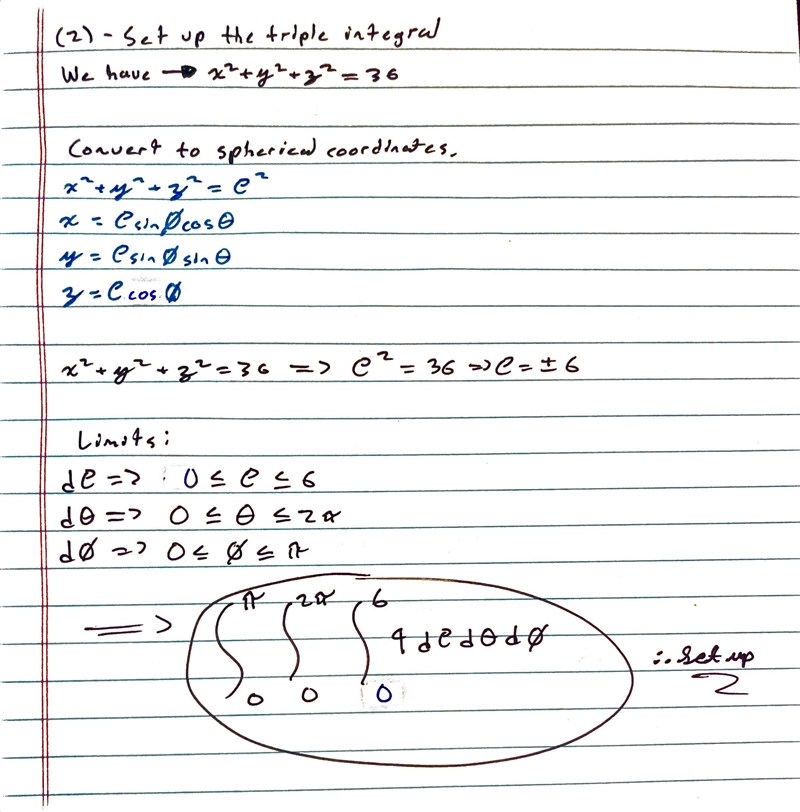 (2) - Set up the triple integral
We have → x²+y²+z² = 36
Convert to spherical coordinates.
x²+y²+z² = ρ²
x = ρ sin∅ cosθ
y = ρ sin∅ sinθ
z = ρ cos ∅
x²+y²+z² = 36 => ρ² = 36 => ρ = ± 6
Limits:
dρ => 0 ≤ ρ ≤ 6
dθ => 0 ≤ θ ≤ 2π
d∅ => 0 ≤ ∅ ≤ π
=> ∫₀^π ∫₀^2π ∫₀^6 9 dρ dθ d∅ ∴ set up